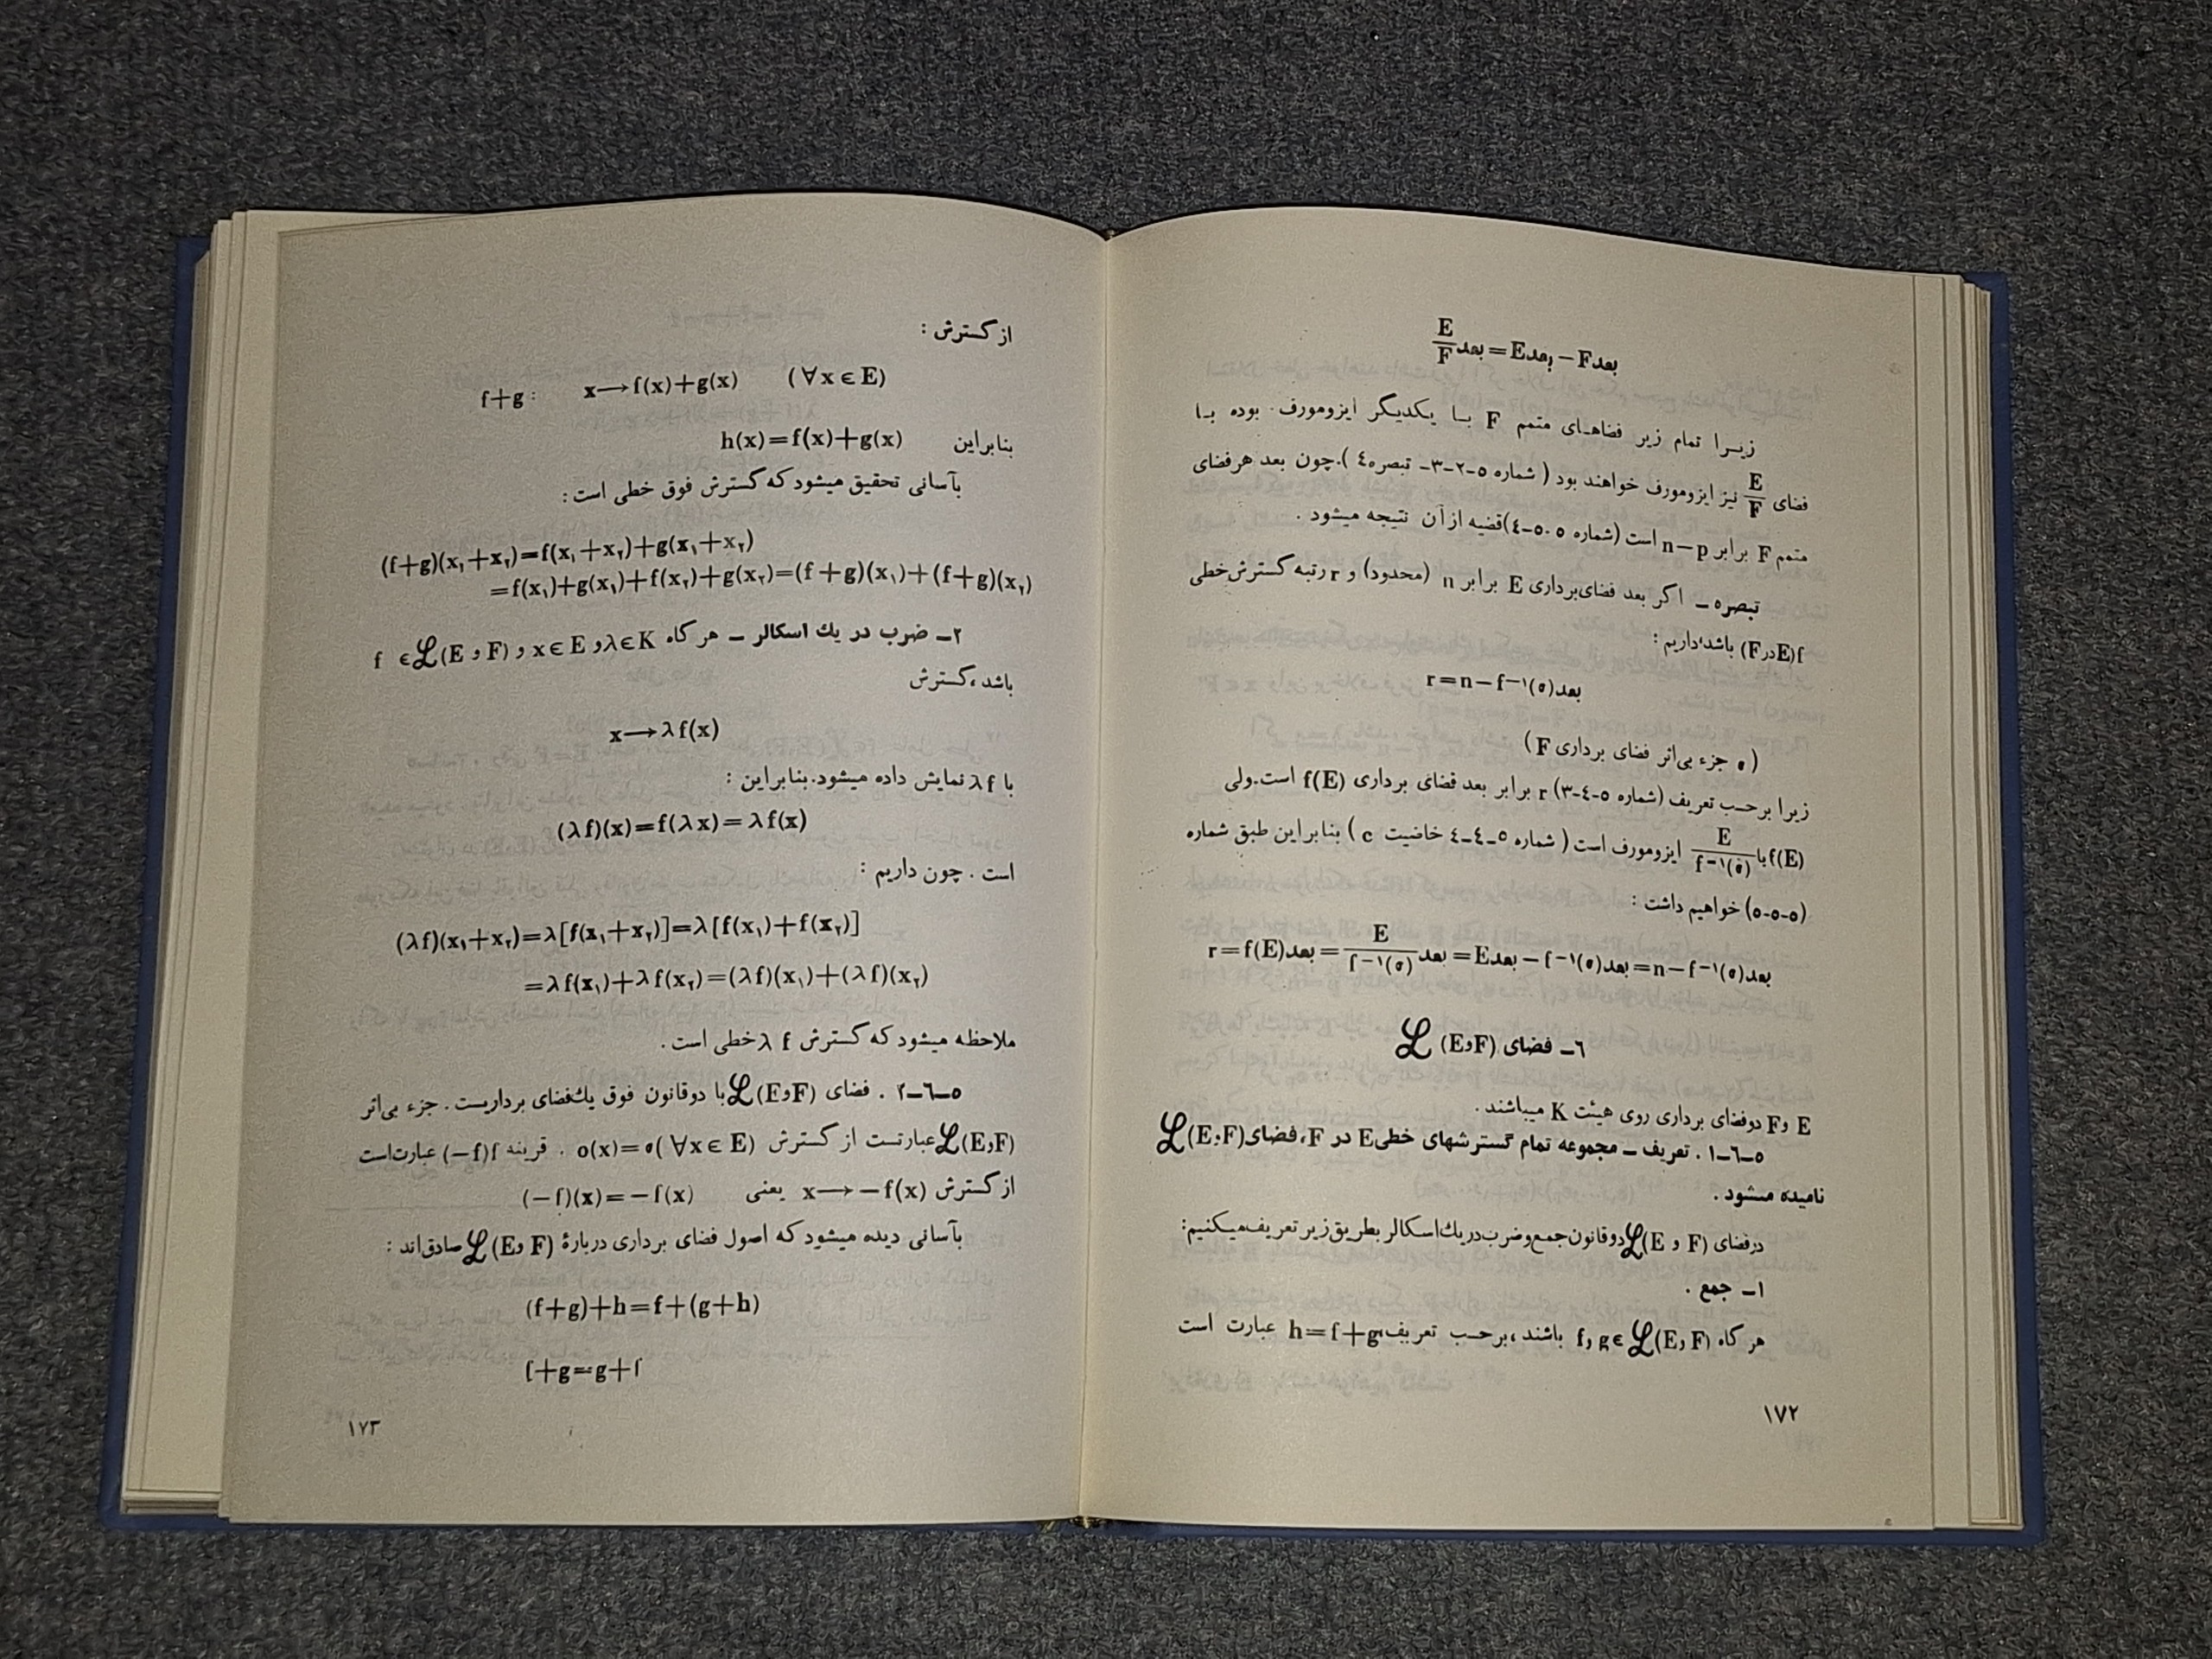 بعد E/F = بعد E − بعد F
زیرا تمام زیر فضاهای متمم F با یکدیگر ایزومورف بوده با
فضای E/F نیز ایزومورف خواهند بود ( شماره ۵-۲-۳- تبصره ٤ ). چون بعد هر فضای
متمم F برابر n−p است (شماره ۵-۵-٤) قضیه از آن نتیجه میشود .
تبصره ــ اگر بعد فضای برداری E برابر n (محدود) و r رتبه گسترش خطی
f(E در F) باشد، داریم :
r=n− بعد f⁻¹(۰)
(۰ جزء بی‌اثر فضای برداری F)
زیرا بر حسب تعریف (شماره ۵-٤-۳) r برابر بعد فضای برداری f(E) است. ولی
f(E) با E/f⁻¹(۰) ایزومورف است ( شماره ۵-٤-٤ خاضیت c ) بنابراین طبق شماره
(۵-۵-۵) خواهیم داشت :
r = بعد f(E) = بعد E/f⁻¹(۰) = بعد E − بعد f⁻¹(۰) = n − بعد f⁻¹(۰)
٦ـ فضای ℒ(E و F)
E و F دو فضای برداری روی هیئت K میباشند .
۵-٦-۱ . تعریف ــ مجموعه تمام گسترشهای خطی E در F، فضای ℒ(E و F)
نامیده میشود .
در فضای ℒ(E و F) دو قانون جمع و ضرب در یك اسکالر بطریق زیر تعریف میکنیم :
۱ـ جمع .
هر گاه f و g∈ℒ(E و F) باشند، بر حسب تعریف، h=f+g عبارت است
۱۷۲
از گسترش :
f+g : x⟶f(x)+g(x) (∀x∈E)
بنابراین h(x)=f(x)+g(x)
بآسانی تحقیق میشود که گسترش فوق خطی است :
(f+g)(x₁+x₂)=f(x₁+x₂)+g(x₁+x₂)
=f(x₁)+g(x₁)+f(x₂)+g(x₂)=(f+g)(x₁)+(f+g)(x₂)
۲ـ ضرب در یك اسکالر ــ هر گاه λ∈K و x∈E و f ∈ℒ(E و F)
باشد، گسترش
x⟶λf(x)
با λf نمایش داده میشود. بنابراین :
(λf)(x)=f(λx)=λf(x)
است . چون داریم :
(λf)(x₁+x₂)=λ[f(x₁+x₂)]=λ[f(x₁)+f(x₂)]
=λf(x₁)+λf(x₂)=(λf)(x₁)+(λf)(x₂)
ملاحظه میشود که گسترش λf خطی است .
۵-٦-۲ . فضای ℒ(E و F) با دو قانون فوق یك فضای برداریست . جزء بی‌اثر
ℒ(E و F) عبارتست از گسترش o(x)=۰ (∀x∈E) . قرینه f (−f) عبارت است
از گسترش x⟶−f(x) یعنی (−f)(x)=−f(x)
بآسانی دیده میشود که اصول فضای برداری دربارهٔ ℒ(E و F) صادق‌اند :
(f+g)+h=f+(g+h)
f+g=g+f
۱۷۳